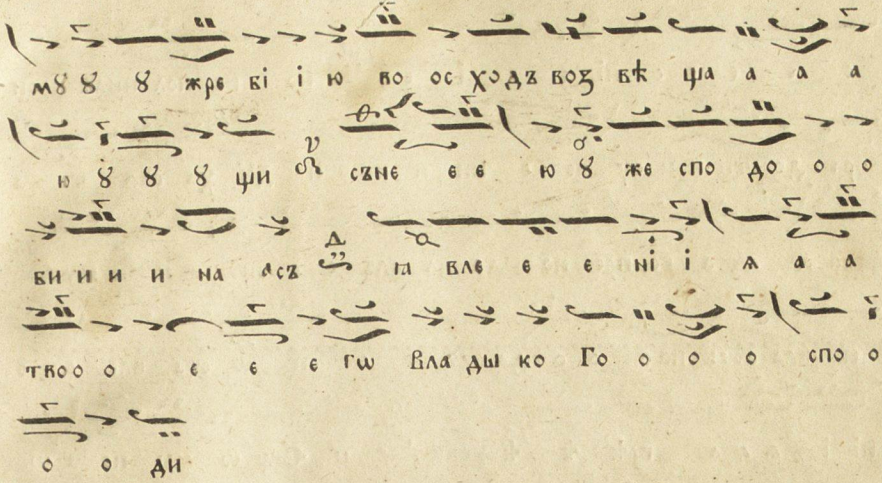 мꙋ ꙋ ꙋ жре бі і ю во ос ходъ воз вѣ ща а а а
ю ꙋ ꙋ ꙋ щи съне е е ю ꙋ же спо до о о
би и и и на асъ ꙗ вле е е ні і ѧ а а
тво о о е е е гѡ вла ды ко Го о о о спо о
о о ди